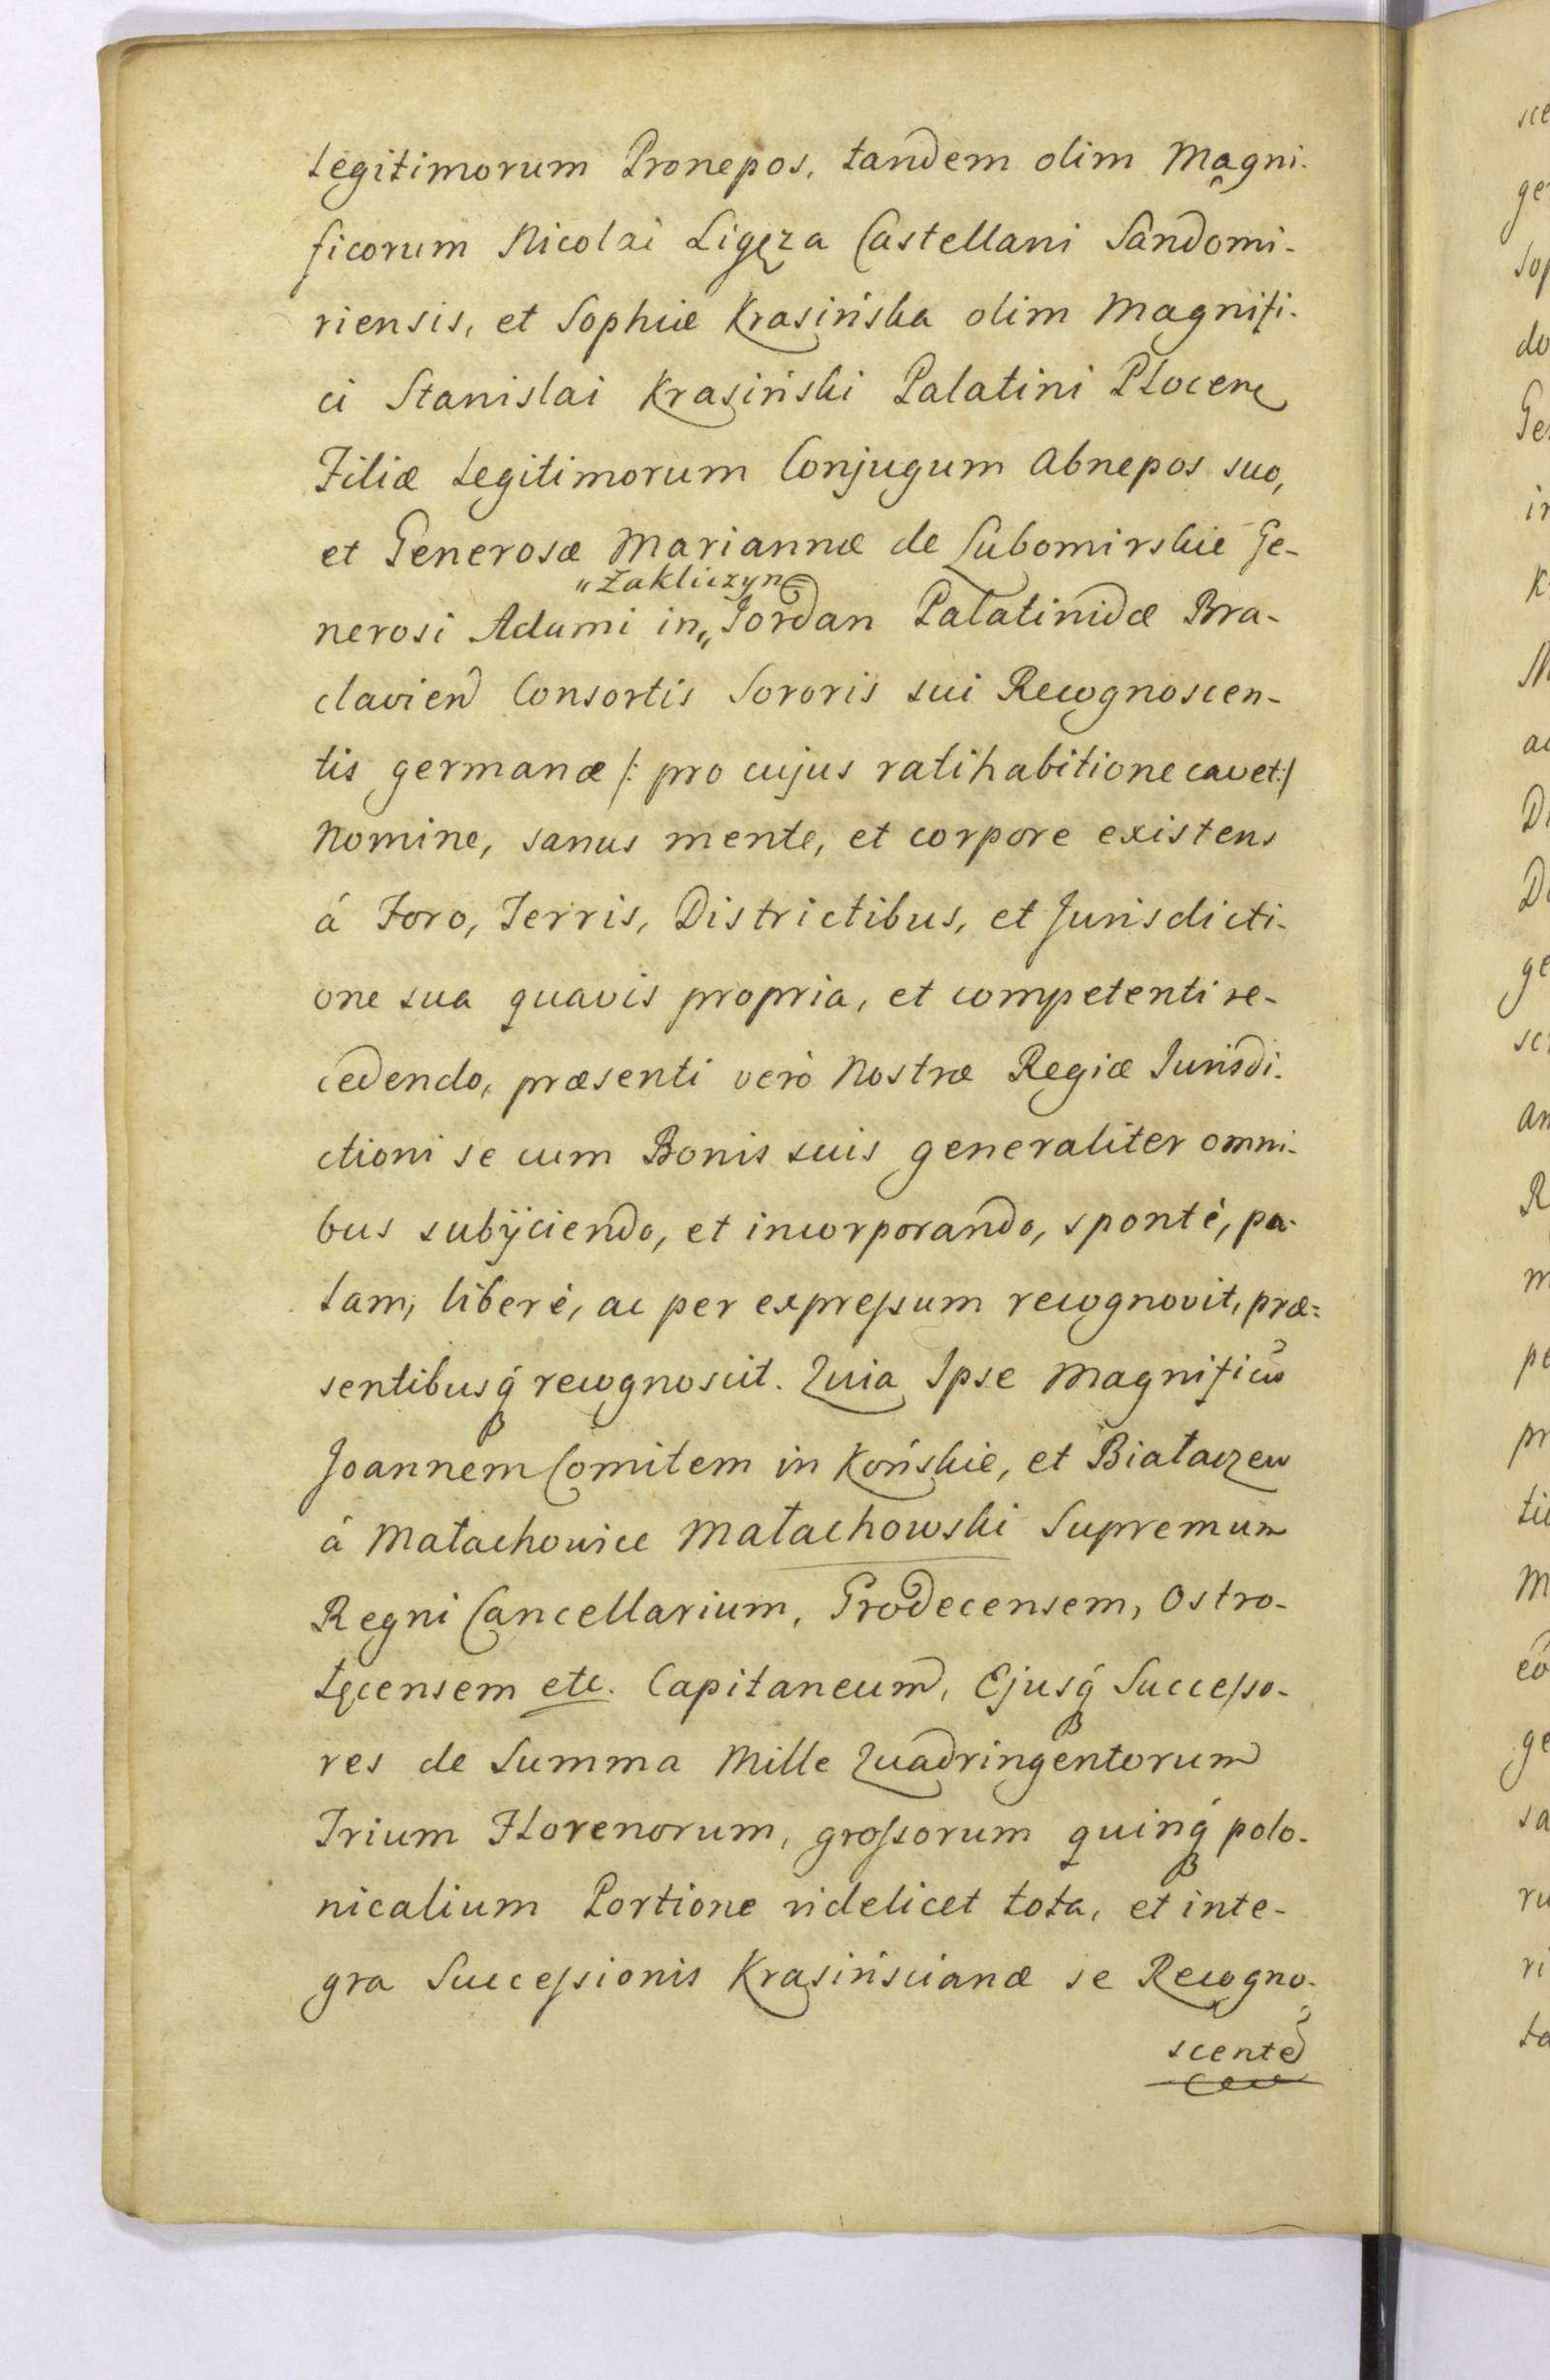 Legitimorum Pronepos, tandem olim Magni-
ficorum Nicolai Ligęza Castellani Sandomi-
riensis, et Sophiæ Krasińska olim Magnifi-
ci Stanislai Krasiński Palatini Płocen
Filiæ Legitimorum Conjugum Abnepos suo,
et Generosæ Mariannæ de Lubomirskie Ge-
"Zakliczyn
nerosi Adami in„ Jordan Palatinidæ Bra-
clavien Consortis Sororis sui Recognoscen-
tis germanæ /: pro cujus ratihabitione cavet :/
Nomine, sanus mente, et corpore existens
á Foro, Terris, Districtibus, et Jurisdicti-
one sua quavis propria, et competenti re-
cedendo, præsenti verò Nostræ Regiæ Jurisdi-
ctioni se cum Bonis suis generaliter omni-
bus subijciendo, et incorporando, spontè, pa-
lam, liberè, ac per expressum recognovit, præ=
sentibusq́ recognoscit. Quia Ipse Magnificũ
Joannem Comitem in Końskie, et Białaczew
á Małachowice Małachowski Supremum
Regni Cancellarium, Grodecensem, Ostro-
łęcensem etc. Capitaneum, Ejusq́ Successo-
res de Summa Mille Quadringentorum
Trium Florenorum, grossorum quinq́ polo-
nicalium Portione videlicet tota, et inte-
gra Successionis Krasińscianæ se Recogno-
scente